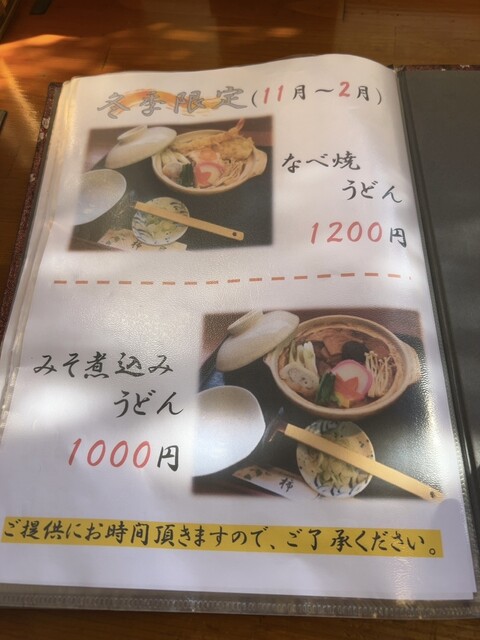 冬季限定(11月～2月)
なべ焼
うどん
1200円
みそ煮込み
うどん
1000円
ご提供にお時間頂きますので、ご了承ください。